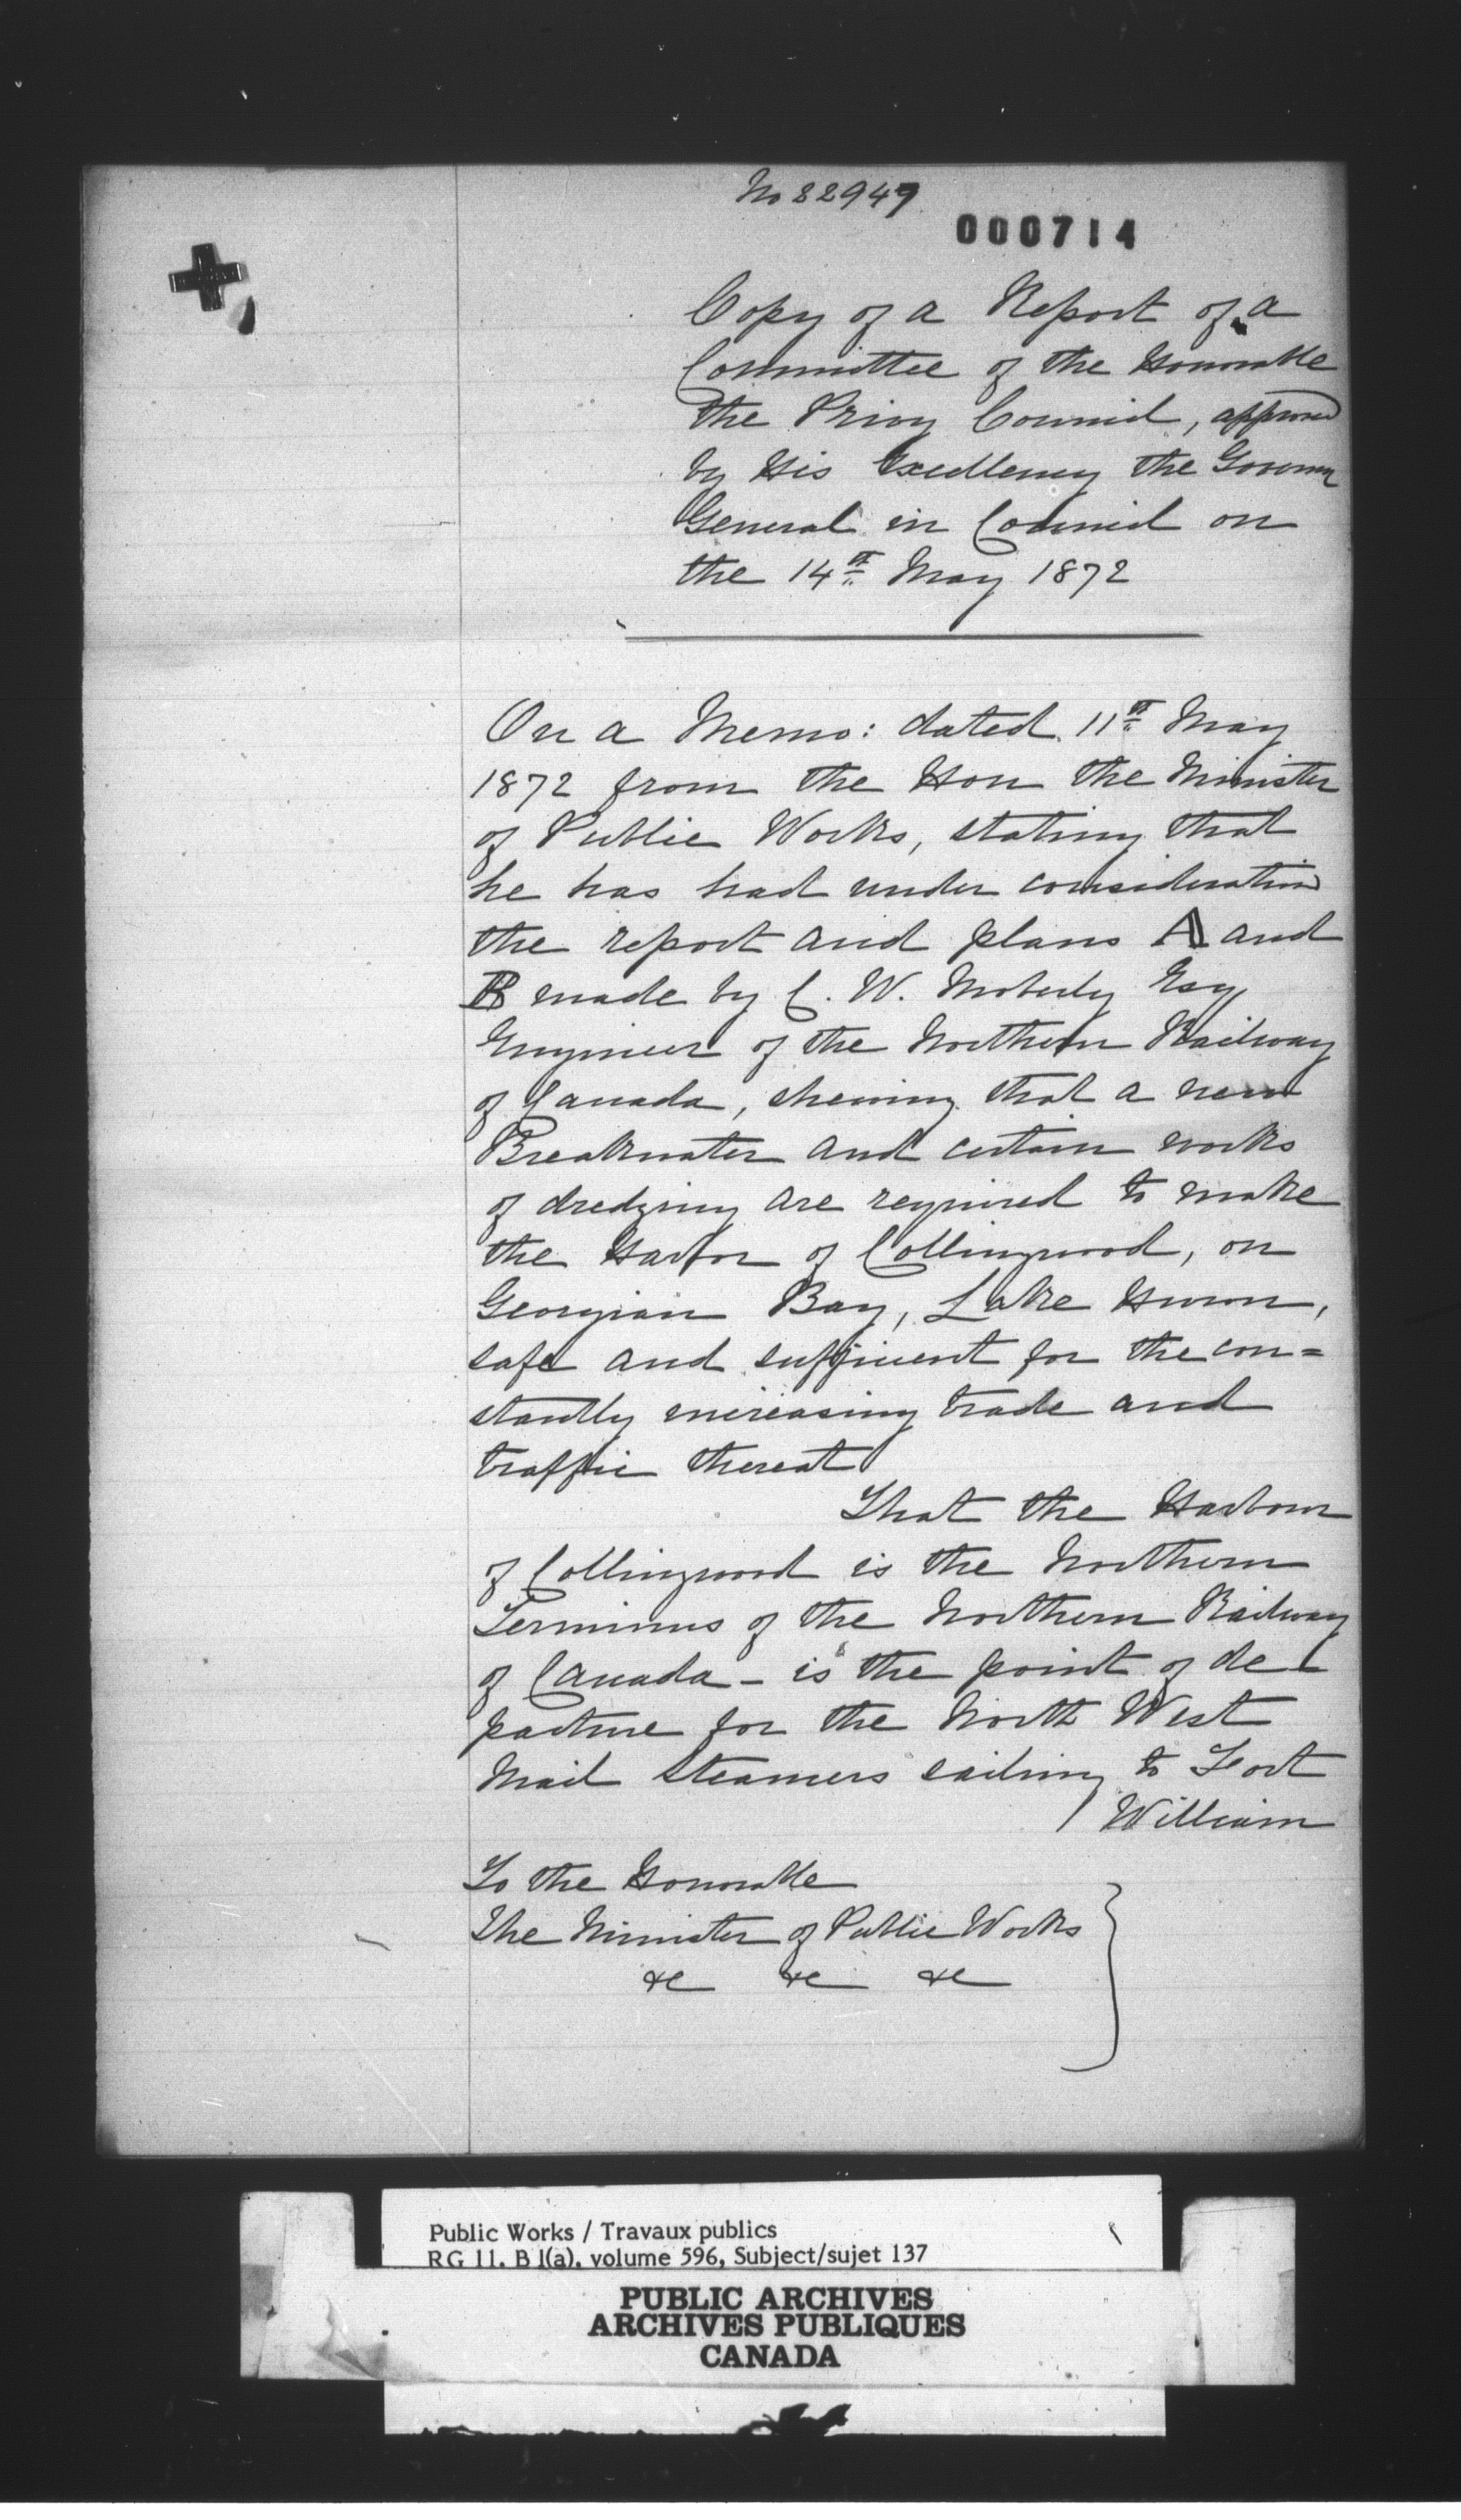 No 22949
000714
Copy of a Report of a
Committee of the Honorable
the Privy Council, approved
by His Excellency the Governor
General in Council on
the 14th May 1872
On a Memo: dated 11th May
1872 from the Hon the Minister
of Public Works, stating that
he has had under consideration
the report and plans A and
B made by C. W. Moberly Esq
Engineer of the Northern Railway
of Canada, shewing that a new
Breakwater and certain works
of dredging are required to make
the Harbor of Collingwood, on
Georgian Bay, Lake Huron,
safe and sufficient for the con=
stantly increasing trade and
traffic thereat
That the Harbour
of Collingwood is the Northern
Terminus of the Northern Railway
of Canada - is the point of de-
parture for the North West
Mail Steamers sailing to Fort
/ William
To the Honorable
The Minister of Public Works
&c &c &c
Public Works / Travaux publics
RG 11, B 1(a), volume 596, Subject/sujet 137
PUBLIC ARCHIVES
ARCHIVES PUBLIQUES
CANADA